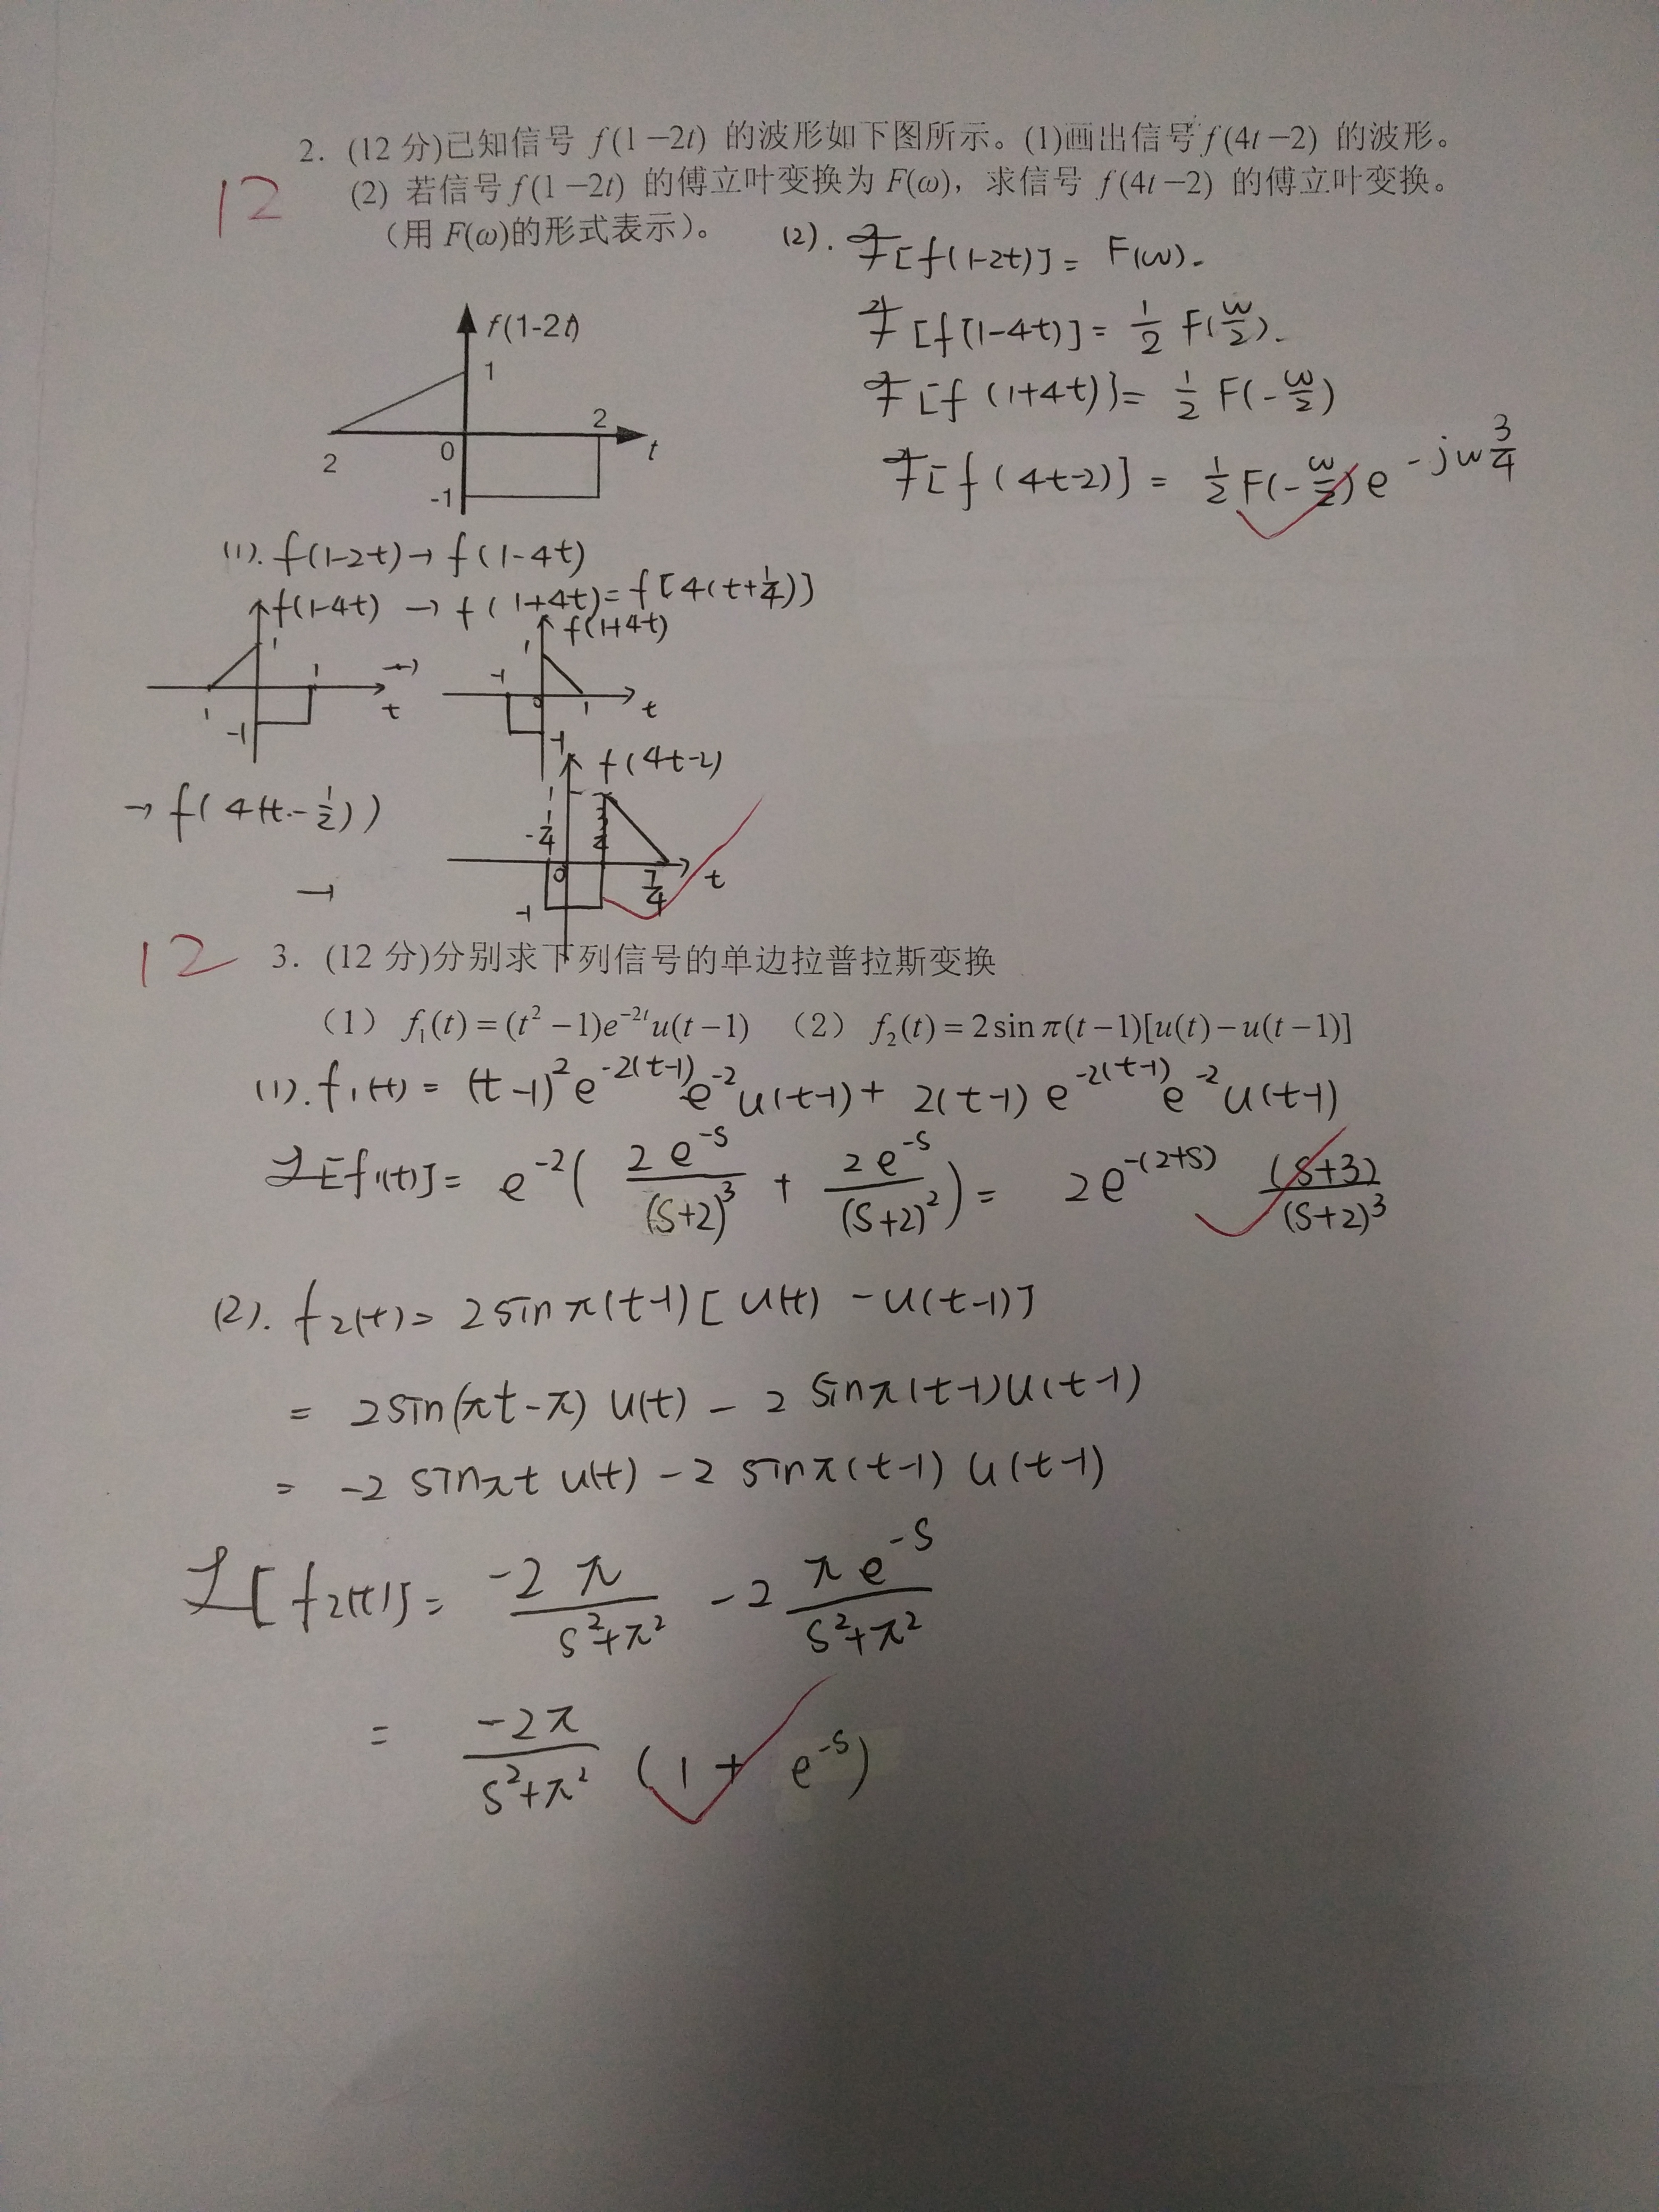 2. (12 分)已知信号 f(1−2t) 的波形如下图所示。(1)画出信号 f(4t−2) 的波形。
12
(2) 若信号 f(1−2t) 的傅立叶变换为 F(ω)，求信号 f(4t−2) 的傅立叶变换。
（用 F(ω)的形式表示）。
(2). ℱ[f(1-2t)] = F(ω).
ℱ[f(1-4t)] = 1/2 F(ω/2).
ℱ[f(1+4t)] = 1/2 F(-ω/2)
ℱ[f(4t-2)] = 1/2 F(-ω/2) e^{-jω 3/4}
f(1-2t)
1
2
2
0
t
-1
(1). f(1-2t) → f(1-4t)
f(1-4t) → f(1+4t) = f[4(t+1/4)]
f(1+4t)
1
1
→
1
-1
t
1
-1
0
1
t
-1
→ f(4(t-1/2))
→
f(4t-2)
1
-1/4
0
7/4
t
-1
12
3. (12 分)分别求下列信号的单边拉普拉斯变换
（1） f₁(t) = (t² −1)e^{−2t}u(t−1) （2） f₂(t) = 2sin π(t−1)[u(t)−u(t−1)]
(1). f₁(t) = (t-1)² e^{-2(t-1)} e^{-2} u(t-1) + 2(t-1) e^{-2(t-1)} e^{-2} u(t-1)
ℒ[f₁(t)] = e^{-2}( 2e^{-s}/(s+2)³ + 2e^{-s}/(s+2)² ) = 2e^{-(2+s)} (s+3)/(s+2)³
(2). f₂(t) = 2 sin π(t-1) [ u(t) - u(t-1) ]
= 2 sin(πt-π) u(t) - 2 sin π(t-1) u(t-1)
= -2 sin πt u(t) - 2 sin π(t-1) u(t-1)
ℒ[f₂(t)] = -2π/(s²+π²) - 2 πe^{-s}/(s²+π²)
= -2π/(s²+π²) (1 + e^{-s})